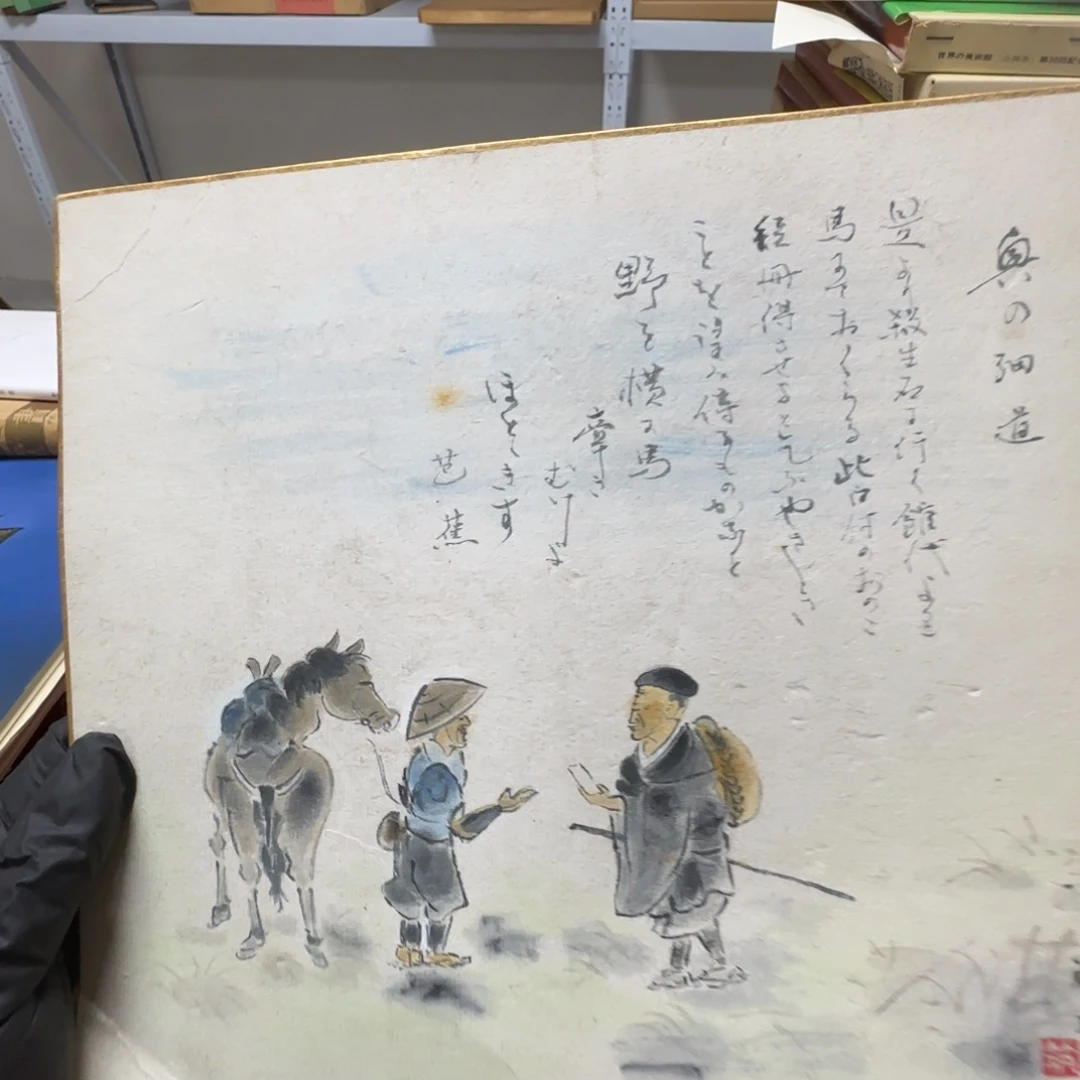 奥の細道
是より殺生石に行く館代より
馬にておくらる此口付のおのこ
短冊得させよとこふやさしき
ことを望み侍るものかなと
野を横に馬
牽き
むけよ
ほとゝきす
芭蕉
世界の美術館